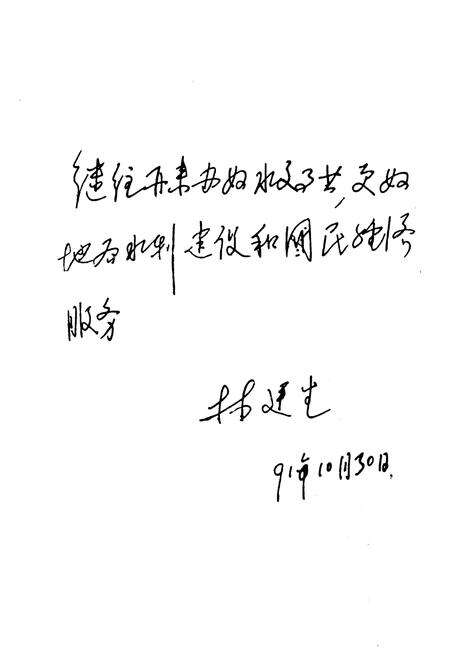 继往开来办好水文事业,更好
地为水利建设和國民经济
服务
林建生
91年10月30日.